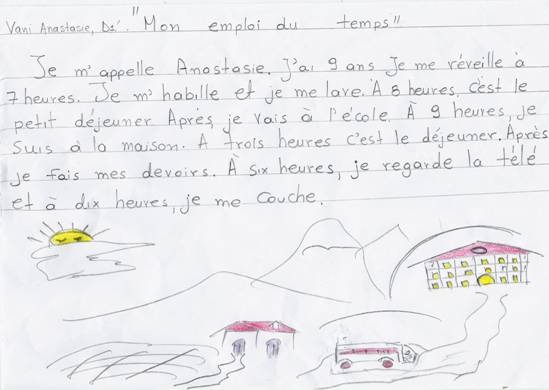 Vani Anastasie, D1'. "Mon emploi du temps"
Je m'appelle Anastasie. J'ai 9 ans Je me réveille à
7 heures. Je m'habille et je me lave. À 8 heures, c'est le
petit déjeuner Après, je vais à l'école. À 9 heures, je
suis à la maison. A trois heures c'est le déjeuner. Après
je fais mes devoirs. À six heures, je regarde la télé
et à dix heures, je me couche.